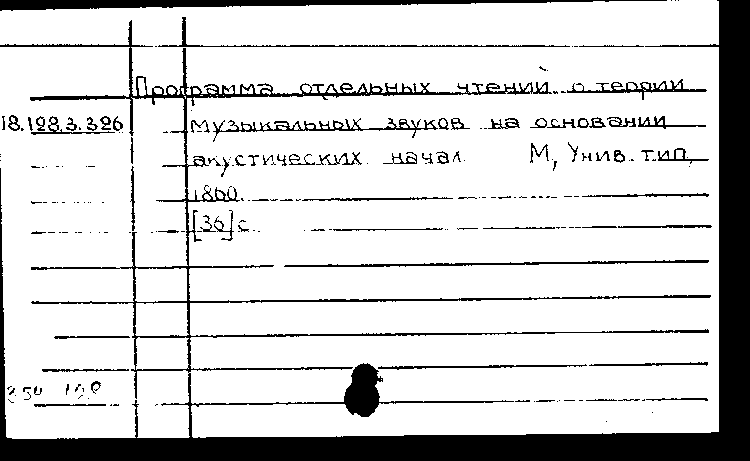 Программа отдельных чтений о теории
18.128.3.326 музыкальных звуков на основании
акустических начал М, Унив. тип,
1860.
[36] с.